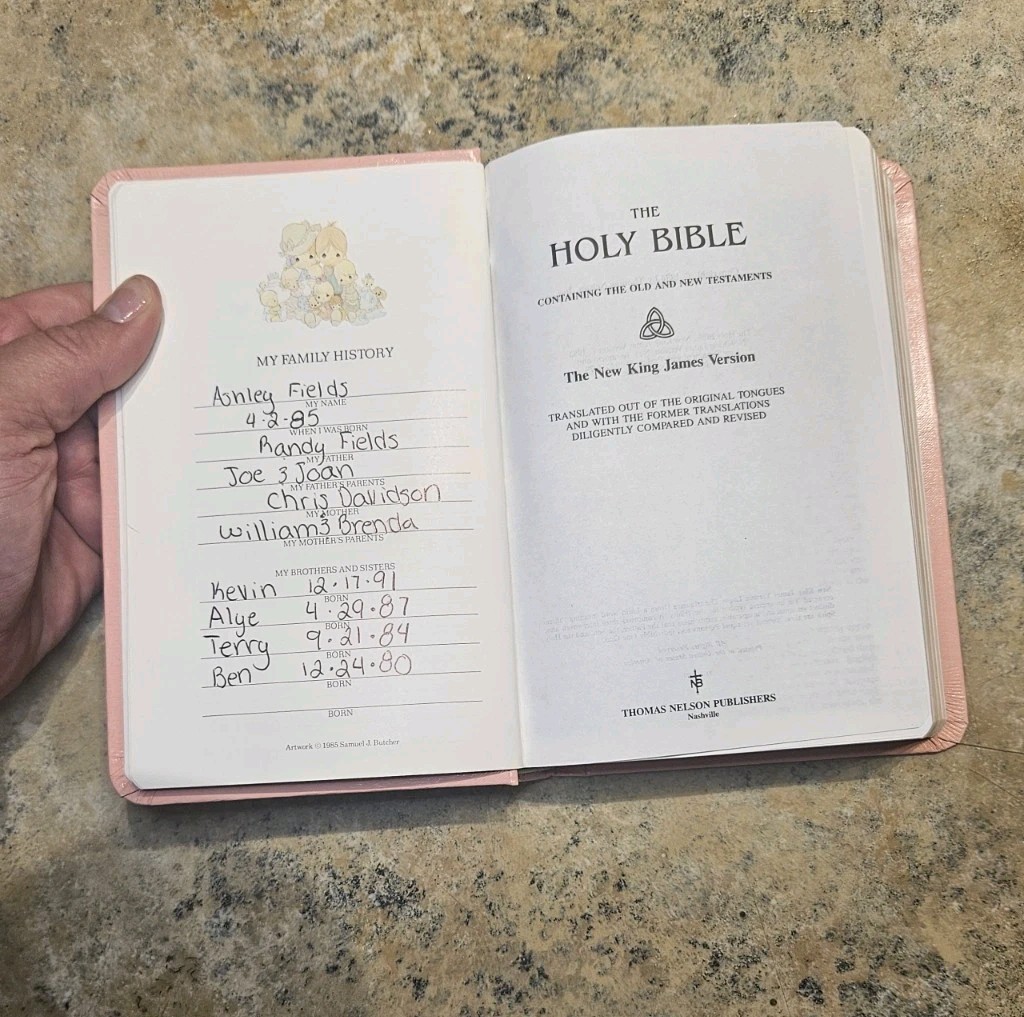 MY FAMILY HISTORY
Ashley Fields
MY NAME
4-2-85
WHEN I WAS BORN
Randy Fields
MY FATHER
Joe & Joan
MY FATHER'S PARENTS
Chris Davidson
MY MOTHER
William & Brenda
MY MOTHER'S PARENTS
MY BROTHERS AND SISTERS
Kevin 12·17·91
BORN
Alye 4·29·87
BORN
Terry 9·21·84
BORN
Ben 12·24·80
BORN
BORN
Artwork © 1985 Samuel J. Butcher
THE
HOLY BIBLE
CONTAINING THE OLD AND NEW TESTAMENTS
The New King James Version
TRANSLATED OUT OF THE ORIGINAL TONGUES
AND WITH THE FORMER TRANSLATIONS
DILIGENTLY COMPARED AND REVISED
THOMAS NELSON PUBLISHERS
Nashville